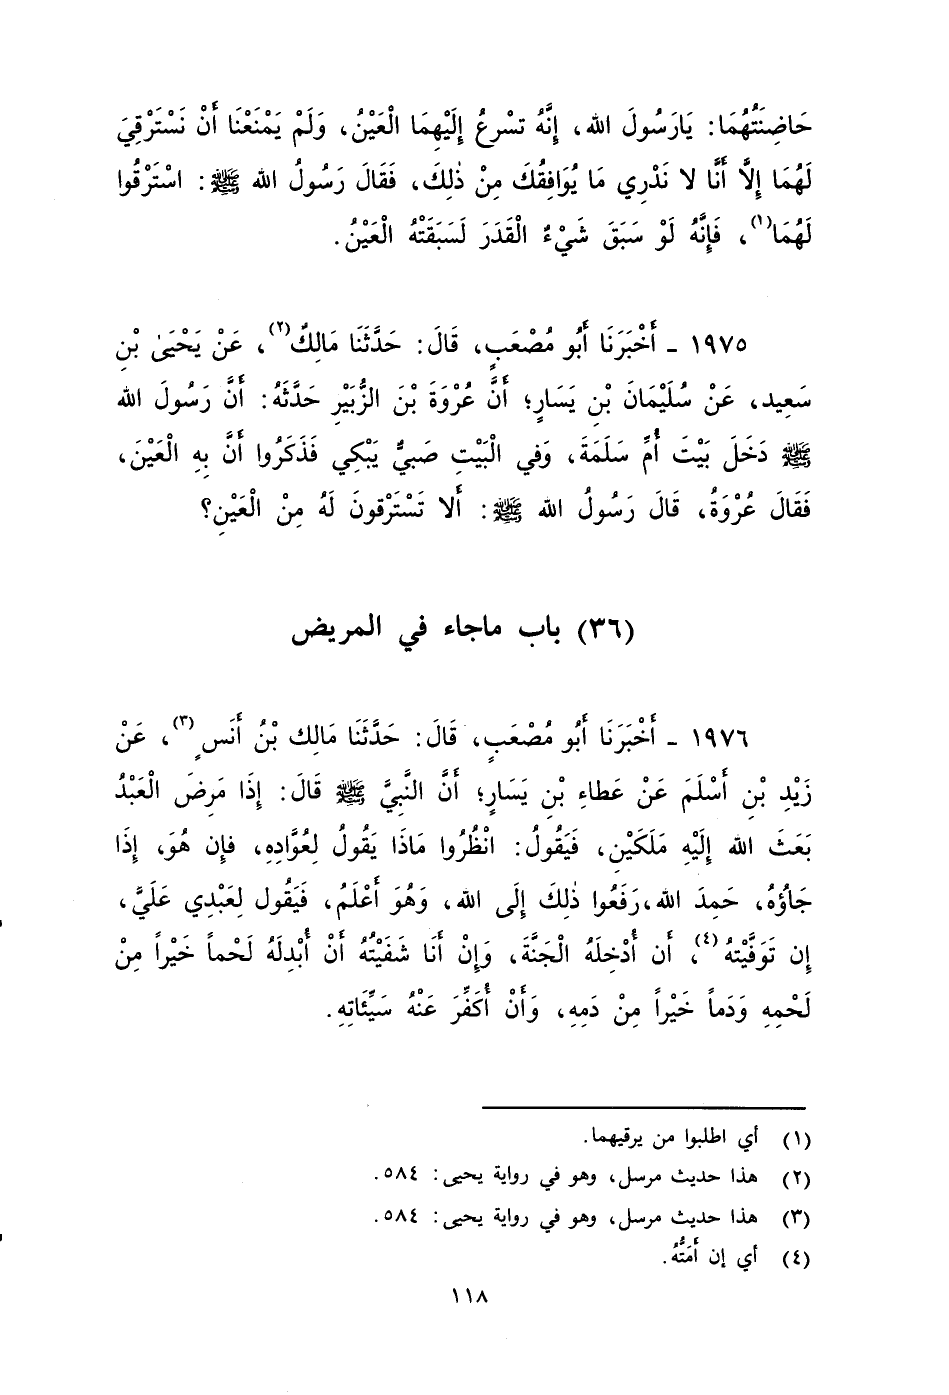 حَاضِنَتُهُمَا: يَارَسُولَ الله، إِنَّهُ تسْرعُ إِلَيْهِمَا الْعَيْنُ، وَلَمْ يَمْنَعْنَا أَنْ نَسْتَرْقِيَ
لَهُمَا إِلاَّ أَنَّا لا نَدْرِي مَا يُوَافِقُكَ مِنْ ذٰلِكَ، فَقَالَ رَسُولُ الله ﷺ: اسْتَرْقُوا
لَهُمَا(١)، فَإِنَّهُ لَوْ سَبَقَ شَيْءٌ الْقَدَرَ لَسَبَقَتْهُ الْعَيْنُ.
١٩٧٥ ـ أَخْبَرَنَا أَبُو مُصْعَبٍ، قَالَ: حَدَّثَنَا مَالِكٌ(٢)، عَنْ يَحْيَىٰ بْنِ
سَعِيد، عَنْ سُلَيْمَانَ بْنِ يَسَارٍ؛ أَنَّ عُرْوَةَ بْنَ الزُّبَيْرِ حَدَّثَهُ: أَنَّ رَسُولَ الله
ﷺ دَخَلَ بَيْتَ أُمِّ سَلَمَةَ، وَفي الْبَيْتِ صَبيٌّ يَبْكِي فَذَكَرُوا أَنَّ بِهِ الْعَيْنَ،
فَقَالَ عُرْوَةُ، قَالَ رَسُولُ الله ﷺ: أَلا تَسْتَرْقونَ لَهُ مِنْ الْعَيْنِ؟
(٣٦) باب ماجاء في المريض
١٩٧٦ ـ أَخْبَرَنَا أَبُو مُصْعَبٍ، قَالَ: حَدَّثَنَا مَالِك بْنُ أَنَسٍ(٣)، عَنْ
زَيْدِ بْنِ أَسْلَمَ عَنْ عَطاءِ بْنِ يَسَارٍ؛ أَنَّ النَّبِيَّ ﷺ قَالَ: إِذَا مَرِضَ الْعَبْدُ
بَعَثَ الله إِلَيْهِ مَلَكَيْنِ، فَيَقُولُ: انْظُرُوا مَاذَا يَقُولُ لِعُوَّادِهِ، فإِن هُوَ، إِذَا
جَاؤُهُ، حَمِدَ الله،رَفَعُوا ذٰلِكَ إِلَى الله، وَهُوَ أَعْلَمُ، فَيَقُول لِعَبْدِي عَلَيَّ،
إِن تَوَفَّيْتهُ(٤)، أَن أُدْخِلَهُ الْجَنَّةَ، وَإِنْ أَنَا شَفَيْتُهُ أَنْ أُبْدِلَهُ لَحْماً خَيْراً مِنْ
لَحْمِهِ وَدَماً خَيْراً مِنْ دَمِهِ، وَأَنْ أُكَفِّرَ عَنْهُ سَيِّئَاتِهِ.
(١) أي اطلبوا من يرقيهما.
(٢) هذا حديث مرسل، وهو في رواية يحيى: ٥٨٤.
(٣) هذا حديث مرسل، وهو في رواية يحيى: ٥٨٤.
(٤) أي إن أَمَتُّهُ.
١١٨